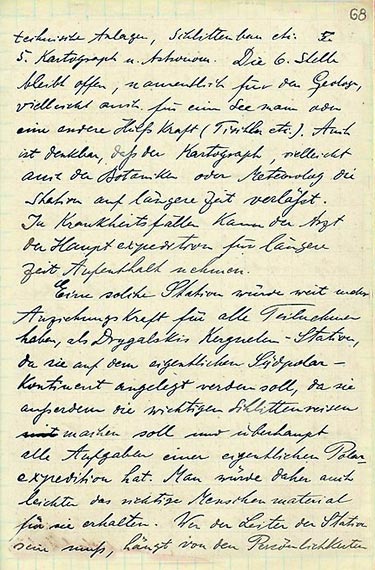 68
technische Anlagen, Schlittenbau etc.
5. Kartograph u. Astronom. Die 6. Stelle
bleibt offen, namentlich für den Geologen,
vielleicht auch für einen Seemann oder
eine andere Hilfskraft (Tischler etc.). Auch
ist denkbar, daß der Kartograph, vielleicht
auch der Botaniker oder Meteorolog die
Station auf längere Zeit verläßt.
In Krankheitsfällen kann der Arzt
der Hauptexpedition für längere
Zeit Aufenthalt nehmen.
Eine solche Station würde weit mehr
Anziehungskraft für alle Teilnehmer
haben, als Drygalskis Kerguelen-Station,
da sie auf dem eigentlichen Südpolar-
Kontinent angelegt werden soll, da sie
außerdem die wichtigen Schlittenreisen
mit machen soll und überhaupt
alle Aufgaben einer eigentlichen Polar-
expedition hat. Man würde daher auch
leichter das richtige Menschenmaterial
für sie erhalten. Wer der Leiter der Station
sein muß, hängt von den Persönlichkeiten